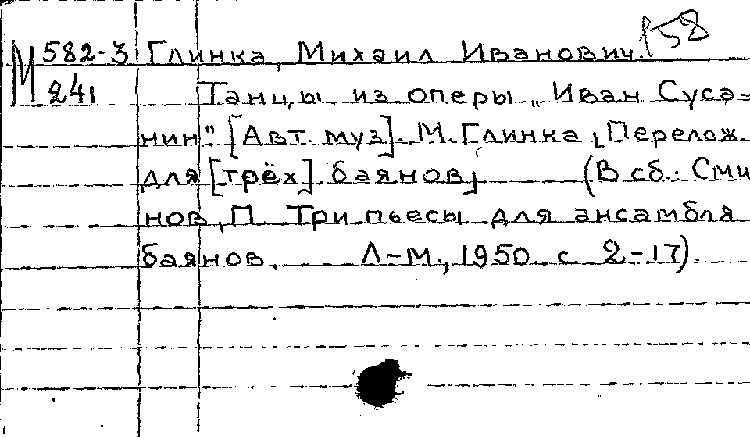 М 582-3 Глинка, Михаил Иванович. 58
241 Танцы из оперы „Иван Суса-
нин" [Авт. муз]. М. Глинка, Перелож.
для [трёх] баянов, (В сб.: Сми
нов, П. Три пьесы для ансамбля
баянов. Л-М., 1950 с 2-17).